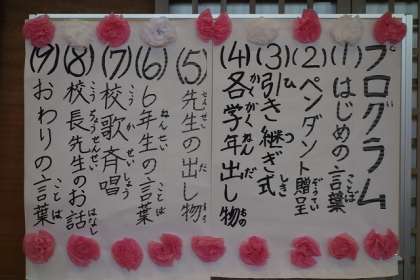 プログラム
(1)はじめの言葉
(2)ペンダント贈呈
(3)引き継ぎ式
(4)各学年出し物
(5)先生の出し物
(6)6年生の言葉
(7)校歌斉唱
(8)校長先生のお話
(9)おわりの言葉